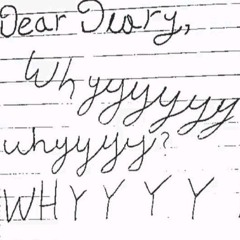 Dear Diary,
Whyyyyyyy
whyyyy?
WHYYYY